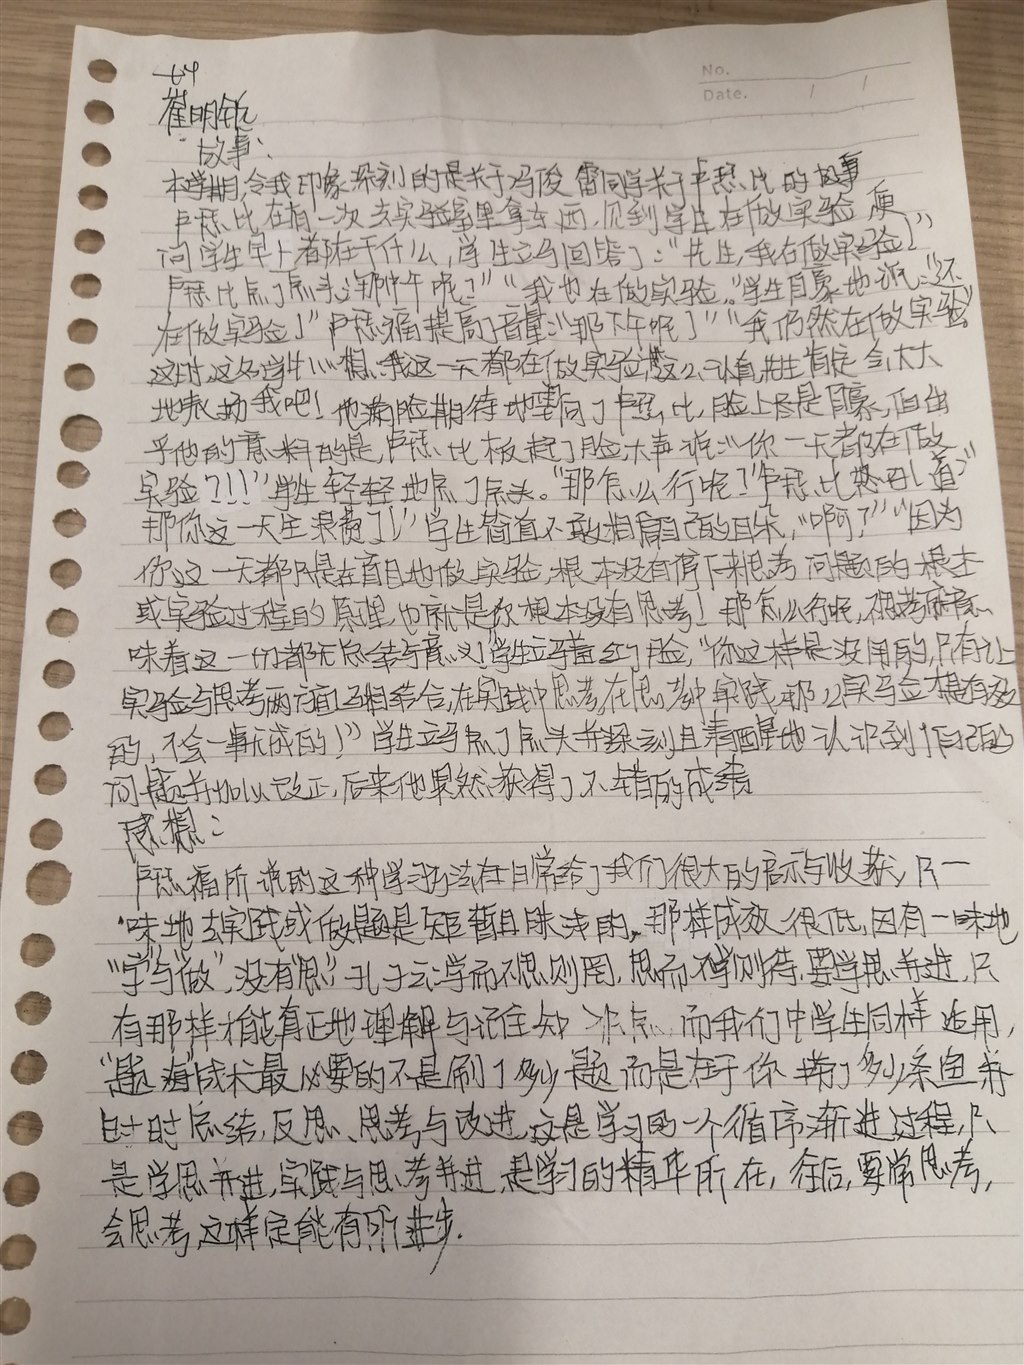 No.
Date. / /
崔明
故事:
本学期,令我印象深刻的是关于冯俊雷同学关于卢瑟比的故事
卢瑟比在有一次去实验室里拿东西,见到学生在做实验,便
问学生早上都在干什么,学生立马回答了:“先生,我在做实验!”
卢瑟比点了点头:“那中午呢?”“我也在做实验。”学生自豪地说:“还
在做实验!”卢瑟福提高了音量:“那下午呢?”“我仍然在做实验”
这时,这名学生心想:我这一天都在做实验,这么认真,先生肯定会大大
地表扬我吧!他满脸期待地望向了卢瑟比,脸上尽是自豪,但出
乎他的意料的是,卢瑟比板起了脸,大声说:“你一天都在做
实验?!!”学生轻轻地点了点头。“那怎么行呢!”卢瑟比怒吼道:“
那你这一天全浪费了!”学生简直不敢相信自己的耳朵,“啊?”“因为
你这一天都只是在盲目地做实验,根本没有停下来思考问题的根本
或实验过程的原理,也就是你根本没有思考!那怎么行呢,
味着这一切都无总结与意义!”学生立马羞红了脸,“你这样是没用的,只有让
实验与思考两方面互相结合,在实践中思考,在思考中实践,那么实验才是有效
的,不会一事无成的!”学生立马点了点头并深刻且清醒地认识到了自己的
问题并加以改正,后来他果然获得了不错的成绩
感想:
卢瑟福所说的这种学习方法在日常给了我们很大的启示与收获,只一
味地去实践或做题是短暂且肤浅的,那样成效很低,因有一味地
“学”与“做”,没有“思”,孔子云:学而不思则罔,思而不学则殆,要学思并进,只
有那样才能真正地理解与记住知识点,而我们中学生同样适用,
“题海”战术最必要的不是刷了多少题而是在于你捞了多少条鱼并
时时总结,反思、思考与改进,这是学习的一个循序渐进过程,只
是学思并进,实践与思考并进,是学习的精华所在,往后,要常思考,
会思考,这样定能有所进步.